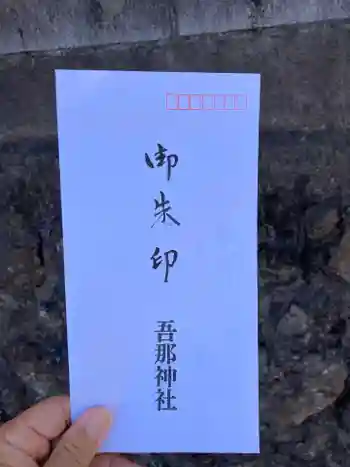 御朱印
吾那神社